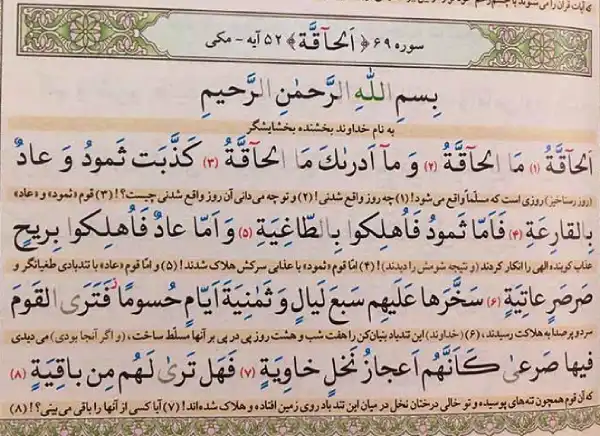 سوره ۶۹ ﴿ اَلحآقَّة ﴾ ۵۲ آیه - مکی
بِسمِ اللّٰهِ الرَّحمٰنِ الرَّحیمِ
به نام خداوند بخشنده بخشایشگر
اَلحآقَّةُ (۱) مَا الحآقَّةُ (۲) وَ مآ اَدرىٰكَ مَا الحآقَّةُ (۳) كَذَّبَت ثَمودُ وَ عادٌ
(روز رستاخیز) روزی است که مسلّماً واقع می‌شود! (۱) چه روز واقع شدنی! (۲) و تو چه می‌دانی آن روز واقع شدنی چیست؟! (۳) قوم «ثمود» و «عاد»
بِالقارِعَةِ (۴) فَاَمّا ثَمودُ فَاُهلِكوا بِالطّاغِيَةِ (۵) وَ اَمّا عادٌ فَاُهلِكوا بِريحٍ
عذاب کوبنده الهی را انکار کردند (و نتیجه شومش را دیدند)! (۴) امّا قوم «ثمود» با عذابی سرکش هلاک شدند! (۵) و امّا قوم «عاد» با تندبادی طغیانگر و
صَرصَرٍ عاتِيَةٍ (۶) سَخَّرَها عَلَيهِم سَبعَ لَيالٍ وَ ثَمٰنِيَةَ اَيّامٍ حُسومًا فَتَرَى القَومَ
سرد و پرصدا به هلاکت رسیدند، (۶) (خداوند) این تندباد بنیان‌کن را هفت شب و هشت روز پی در پی بر آنها مسلّط ساخت، (و اگر آنجا بودی) می‌دیدی
فيها صَرعىٰ كَاَنَّهُم اَعجازُ نَخلٍ خاوِيَةٍ (۷) فَهَل تَرىٰ لَهُم مِن باقِيَةٍ (۸)
که آن قوم همچون تنه‌های پوسیده و تو خالی درختان نخل در میان این تندباد روی زمین افتاده و هلاک شده‌اند! (۷) آیا کسی از آنها را باقی می‌بینی؟! (۸)